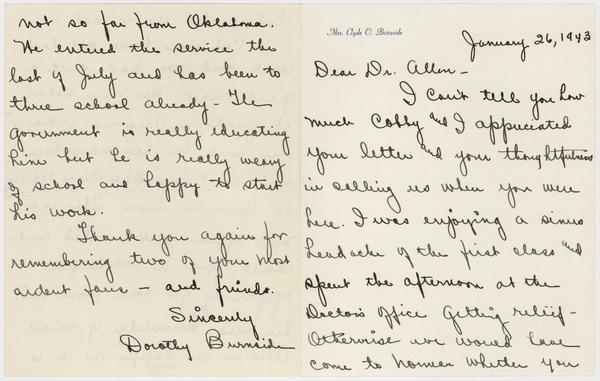 Mrs. Clyde O. Burnside
January 26, 1943
Dear Dr. Allen -
I can't tell you how
much Cobby and I appreciated
your letter and your thoughtfulness
in calling us when you were
here. I was enjoying a sinus
headache of the first class and
spent the afternoon at the
Doctor's office getting relief -
Otherwise we would have
come to Norman whether you
not so far from Oklahoma.
He entered the service the
last of July and has been to
three school already - The
government is really educating
him but he is really weary
of school and happy to start
his work.
Thank you again for
remembering two of your most
ardent fans - and friends.
Sincerely
Dorothy Burnside